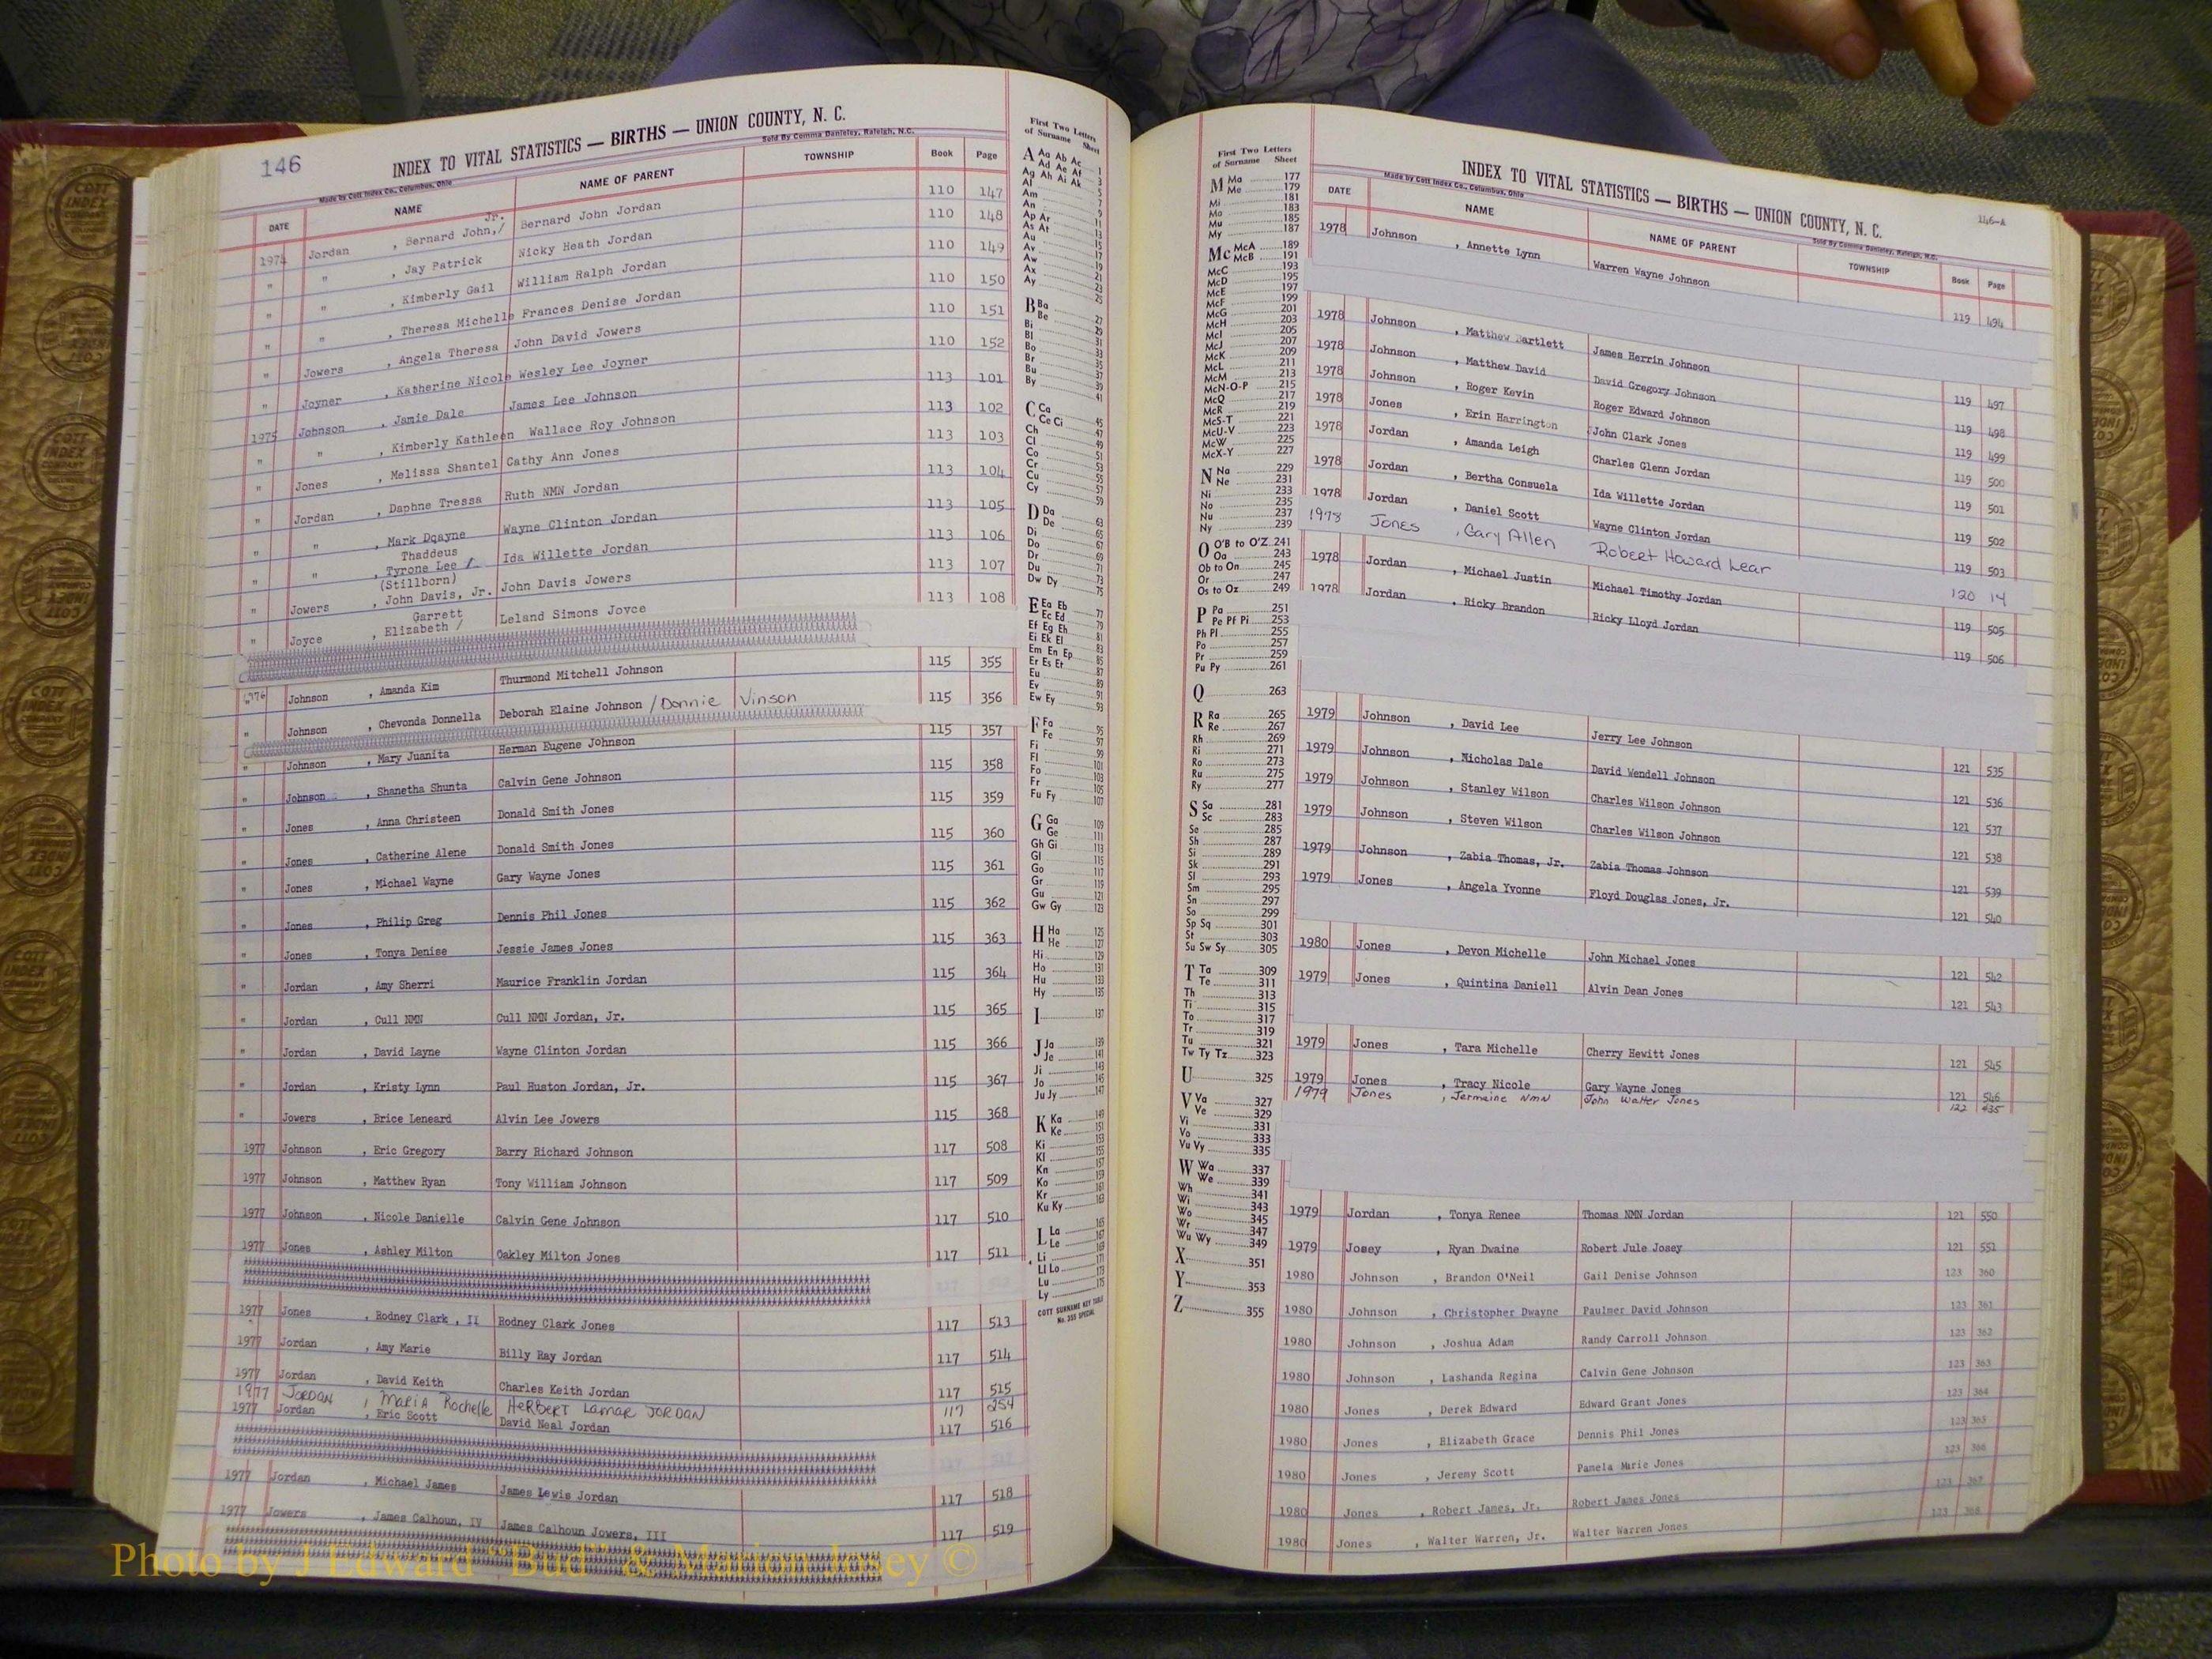 146
INDEX TO VITAL STATISTICS — BIRTHS — UNION COUNTY, N. C.
Made by Cott Index Co., Columbus, Ohio
Sold By Comma Danieley, Raleigh, N.C.
DATE NAME NAME OF PARENT TOWNSHIP Book Page
1974 Jordan , Bernard John,/ Jr. Bernard John Jordan 110 147
" " , Jay Patrick Nicky Heath Jordan 110 148
" " , Kimberly Gail William Ralph Jordan 110 149
" " , Theresa Michelle Frances Denise Jordan 110 150
" Jowers , Angela Theresa John David Jowers 110 151
" Joyner , Katherine Nicole Wesley Lee Joyner 110 152
1975 Johnson , Jamie Dale James Lee Johnson 113 101
" " , Kimberly Kathleen Wallace Roy Johnson 113 102
" Jones , Melissa Shantel Cathy Ann Jones 113 103
" Jordan , Daphne Tressa Ruth NMN Jordan 113 104
" " , Mark Dqayne Wayne Clinton Jordan 113 105
" " , Thaddeus Tyrone Lee / (Stillborn) Ida Willette Jordan 113 106
" Jowers , John Davis, Jr. John Davis Jowers 113 107
" Joyce , Garrett Elizabeth / Leland Simons Joyce 113 108
1976 Johnson , Amanda Kim Thurmond Mitchell Johnson 115 355
" Johnson , Chevonda Donnella Deborah Elaine Johnson /Donnie Vinson 115 356
" Johnson , Mary Juanita Herman Eugene Johnson 115 357
" Johnson , Shanetha Shunta Calvin Gene Johnson 115 358
" Jones , Anna Christeen Donald Smith Jones 115 359
" Jones , Catherine Alene Donald Smith Jones 115 360
" Jones , Michael Wayne Gary Wayne Jones 115 361
" Jones , Philip Greg Dennis Phil Jones 115 362
" Jones , Tonya Denise Jessie James Jones 115 363
" Jordan , Amy Sherri Maurice Franklin Jordan 115 364
" Jordan , Cull NMN Cull NMN Jordan, Jr. 115 365
" Jordan , David Layne Wayne Clinton Jordan 115 366
" Jordan , Kristy Lynn Paul Huston Jordan, Jr. 115 367
" Jowers , Brice Leneard Alvin Lee Jowers 115 368
1977 Johnson , Eric Gregory Barry Richard Johnson 117 508
1977 Johnson , Matthew Ryan Tony William Johnson 117 509
1977 Johnson , Nicole Danielle Calvin Gene Johnson 117 510
1977 Jones , Ashley Milton Oakley Milton Jones 117 511
1977 Jones , Rodney Clark , II Rodney Clark Jones 117 513
1977 Jordan , Amy Marie Billy Ray Jordan 117 514
1977 Jordan , David Keith Charles Keith Jordan 117 515
1977 JORDAN , MARIA Rochelle HERBERT Lamar JORDAN 117 254
1977 Jordan , Eric Scott David Neal Jordan 117 516
1977 Jordan , Michael James James Lewis Jordan 117 518
1977 Jowers , James Calhoun, IV James Calhoun Jowers, III 117 519
First Two Letters
of Surname Sheet
A Aa Ab Ac 1
Ad Ae Af 3
Ag Ah Ai Ak 5
Al 7
Am 9
An 11
Ap Ar 13
As At 15
Au 17
Av 19
Aw 21
Ax 23
Ay 25
B Ba 27
Be 29
Bi 31
Bl 33
Bo 35
Br 37
Bu 39
By 41
C Ca 45
Ce Ci 47
Ch 49
Cl 51
Co 53
Cr 55
Cu 57
Cy 59
D Da 63
De 65
Di 67
Do 69
Dr 71
Du 73
Dw Dy 75
E Ea Eb 77
Ec Ed 79
Ef Eg Eh 81
Ei Ek El 83
Em En Ep 85
Er Es Et 87
Eu 89
Ev 91
Ew Ey 93
F Fa 95
Fe 97
Fi 99
Fl 101
Fo 103
Fr 105
Fu Fy 107
G Ga 109
Ge 111
Gh Gi 113
Gl 115
Go 117
Gr 119
Gu 121
Gw Gy 123
H Ha 125
He 127
Hi 129
Ho 131
Hu 133
Hy 135
I 137
J Ja 139
Je 141
Ji 143
Jo 145
Ju Jy 147
K Ka 149
Ke 151
Ki 153
Kl 155
Kn 157
Ko 159
Kr 161
Ku Ky 163
L La 165
Le 167
Li 169
Ll Lo 171
Lu 173
Ly 175
COTT SURNAME KEY TABLE
No. 355 SPECIAL
First Two Letters
of Surname Sheet
M Ma 177
Me 179
Mi 181
Mo 183
Mu 185
My 187
Mc McA 189
McB 191
McC 193
McD 195
McE 197
McF 199
McG 201
McH 203
McI 205
McJ 207
McK 209
McL 211
McM 213
McN-O-P 215
McQ 217
McR 219
McS-T 221
McU-V 223
McW 225
McX-Y 227
N Na 229
Ne 231
Ni 233
No 235
Nu 237
Ny 239
O O'B to O'Z 241
Oa 243
Ob to On 245
Or 247
Os to Oz 249
P Pa 251
Pe Pf Pi 253
Ph Pl 255
Po 257
Pr 259
Pu Py 261
Q 263
R Ra 265
Re 267
Rh 269
Ri 271
Ro 273
Ru 275
Ry 277
S Sa 281
Sc 283
Se 285
Sh 287
Si 289
Sk 291
Sl 293
Sm 295
Sn 297
So 299
Sp Sq 301
St 303
Su Sw Sy 305
T Ta 309
Te 311
Th 313
Ti 315
To 317
Tr 319
Tu 321
Tw Ty Tz 323
U 325
V Va 327
Ve 329
Vi 331
Vo 333
Vu Vy 335
W Wa 337
We 339
Wh 341
Wi 343
Wo 345
Wr 347
Wu Wy 349
X 351
Y 353
Z 355
146-A
INDEX TO VITAL STATISTICS — BIRTHS — UNION COUNTY, N. C.
Made by Cott Index Co., Columbus, Ohio
Sold By Comma Danieley, Raleigh, N.C.
DATE NAME NAME OF PARENT TOWNSHIP Book Page
1978 Johnson , Annette Lynn Warren Wayne Johnson 119 494
1978 Johnson , Matthew Bartlett James Herrin Johnson 119 497
1978 Johnson , Matthew David David Gregory Johnson 119 498
1978 Johnson , Roger Kevin Roger Edward Johnson 119 499
1978 Jones , Erin Harrington John Clark Jones 119 500
1978 Jordan , Amanda Leigh Charles Glenn Jordan 119 501
1978 Jordan , Bertha Consuela Ida Willette Jordan 119 502
1978 Jordan , Daniel Scott Wayne Clinton Jordan 119 503
1978 Jones , Gary Allen Robert Howard Lear 120 14
1978 Jordan , Michael Justin Michael Timothy Jordan 119 505
1978 Jordan , Ricky Brandon Ricky Lloyd Jordan 119 506
1979 Johnson , David Lee Jerry Lee Johnson 121 535
1979 Johnson , Nicholas Dale David Wendell Johnson 121 536
1979 Johnson , Stanley Wilson Charles Wilson Johnson 121 537
1979 Johnson , Steven Wilson Charles Wilson Johnson 121 538
1979 Johnson , Zabia Thomas, Jr. Zabia Thomas Johnson 121 539
1979 Jones , Angela Yvonne Floyd Douglas Jones, Jr. 121 540
1980 Jones , Devon Michelle John Michael Jones 121 542
1979 Jones , Quintina Daniell Alvin Dean Jones 121 543
1979 Jones , Tara Michelle Cherry Hewitt Jones 121 545
1979 Jones , Tracy Nicole Gary Wayne Jones 121 546
1979 Jones , Jermaine NMN John Walter Jones 122 435
1979 Jordan , Tonya Renee Thomas NMN Jordan 121 550
1979 Josey , Ryan Dwaine Robert Jule Josey 121 551
1980 Johnson , Brandon O'Neil Gail Denise Johnson 123 360
1980 Johnson , Christopher Dwayne Paulmer David Johnson 123 361
1980 Johnson , Joshua Adam Randy Carroll Johnson 123 362
1980 Johnson , Lashanda Regina Calvin Gene Johnson 123 363
1980 Jones , Derek Edward Edward Grant Jones 123 364
1980 Jones , Elizabeth Grace Dennis Phil Jones 123 365
1980 Jones , Jeremy Scott Pamela Marie Jones 123 366
1980 Jones , Robert James, Jr. Robert James Jones 123 367
1980 Jones , Walter Warren, Jr. Walter Warren Jones 123 368
Photo by J Edward "Bud" & Marion Josey ©